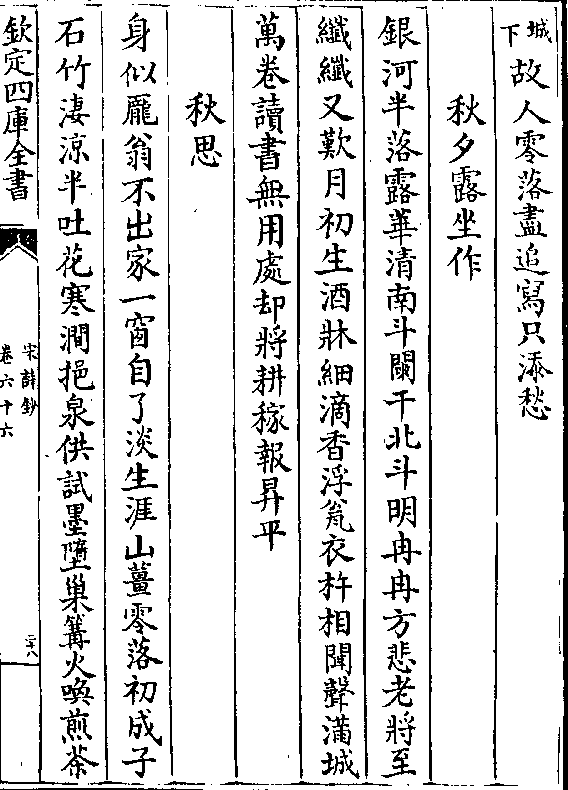 城下故人零落盡追寫只添愁
秋夕露坐作
銀河半落露華清南斗闌干北斗明冉冉方悲老將至
纖纖又歎月初生酒牀細滴香浮甕衣杵相聞聲滿城
萬卷讀書無用處却將耕稼報昇平
秋思
身似龐翁不出家一窗自了淡生涯山薑零落初成子
石竹淒涼半吐花寒澗挹泉供試墨墮巢篝火喚煎茶
欽定四庫全書
宋詩鈔
卷六十六
二十八